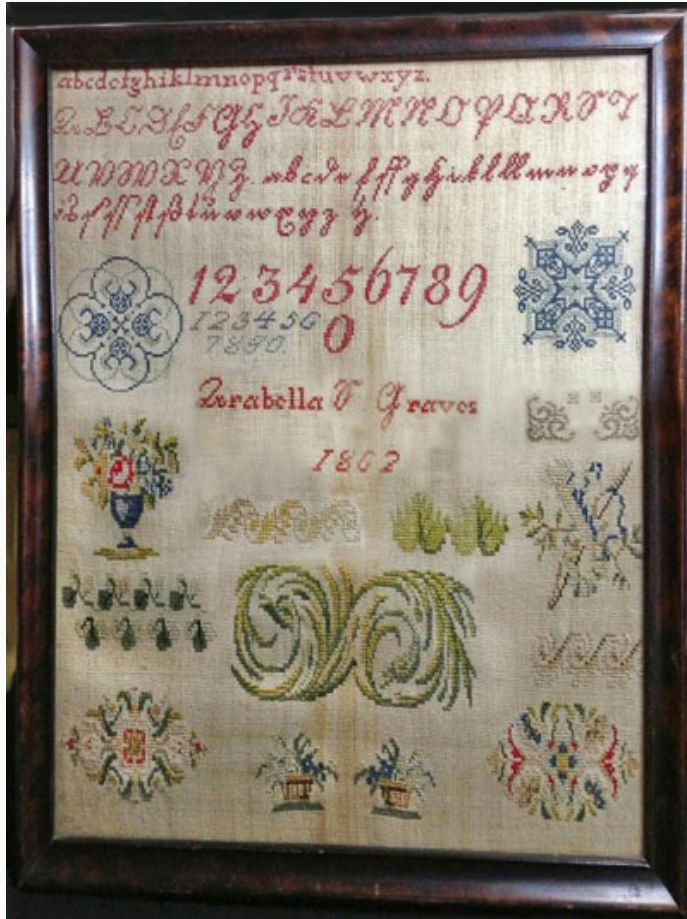 abcdefghiklmnopqrstuvwxyz.
A B C D E F G H I K L M N O P Q R S T
U V W X Y Z. a b c d e f ff g h i k l ll m n o p q
r s ſ ſſ ſt ß t u v w x y z
1234567890
123456
7890.
Arabella S. Graves
1862